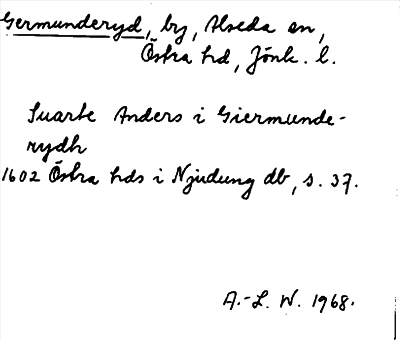 Germunderyd, by, Alseda sn,
Östra hd, Jönk. l.
Suarte Anders i Giermunde-
rydh
1602 Östra hds i Njudung db, s. 37.
A.-L. W. 1968.